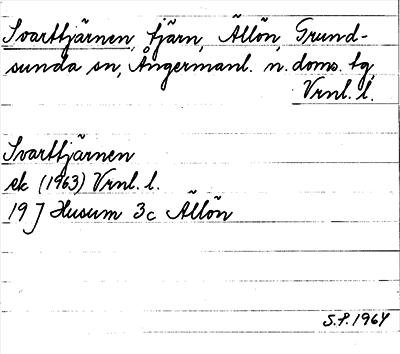 Svarttjärnen, tjärn, Ällön, Grund-
sunda sn, Ångermanl. n. doms. tg,
Vrnl. l.
Svarttjärnen
ek (1963) Vrnl. l.
19 J Husum 3c Ällön
S.F. 1964